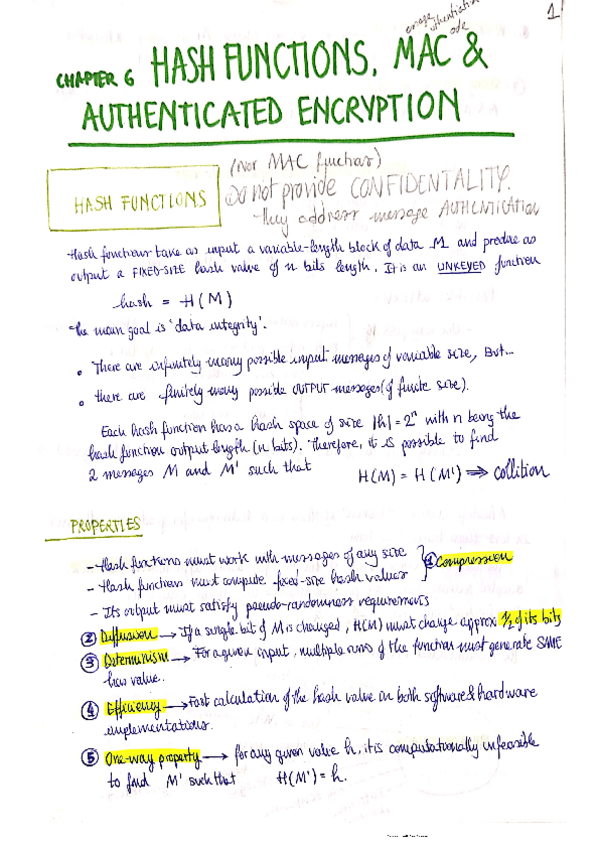 1
message
authentication
code
CHAPTER 6 HASH FUNCTIONS, MAC &
AUTHENTICATED ENCRYPTION
(Nor MAC function)
HASH FUNCTIONS
Do not provide CONFIDENTALITY.
They address message AUTHENTICATION
Hash functions take as input a variable-length block of data M and produce as
output a FIXED-SIZE hash value of n bits length. It is an UNKEYED function
hash = H(M)
The main goal is 'data integrity'.
• There are infinitely many possible input messages of variable size, But...
• there are finitely many possible OUTPUT messages (of finite size).
Each hash function has a hash space of size |h| = 2ⁿ with n being the
hash function output length (n bits). Therefore, it is possible to find
2 messages M and M' such that H(M) = H(M') ⇒ collition
PROPERTIES
- Hash functions must work with messages of any size
- Hash functions must compute fixed-size hash values } ① Compression
- Its output must satisfy pseudo-randomness requirements
② Diffusion → If a single bit of M is changed, H(M) must change approx 1/2 of its bits
③ Determinism → For a given input, multiple runs of the function must generate SAME
has value.
④ Efficiency → Fast calculation of the hash value in both software & hardware
implementations.
⑤ One-way property → for any given value h, it is computationally unfeasible
to find M' such that H(M') = h.